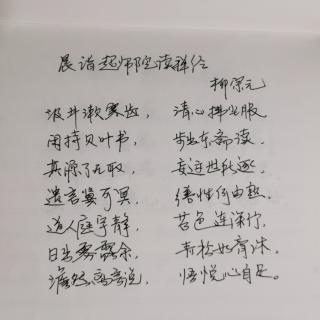 晨诣超师院读禅经
柳宗元
汲井漱寒齿， 清心拂尘服
闲持贝叶书， 步出东斋读，
真源了无取， 妄迹世所逐，
遗言冀可冥， 缮性何由熟，
道人庭宇静， 苔色连深竹，
日出雾露余， 青松如膏沐，
澹然离言说， 悟悦心自足。